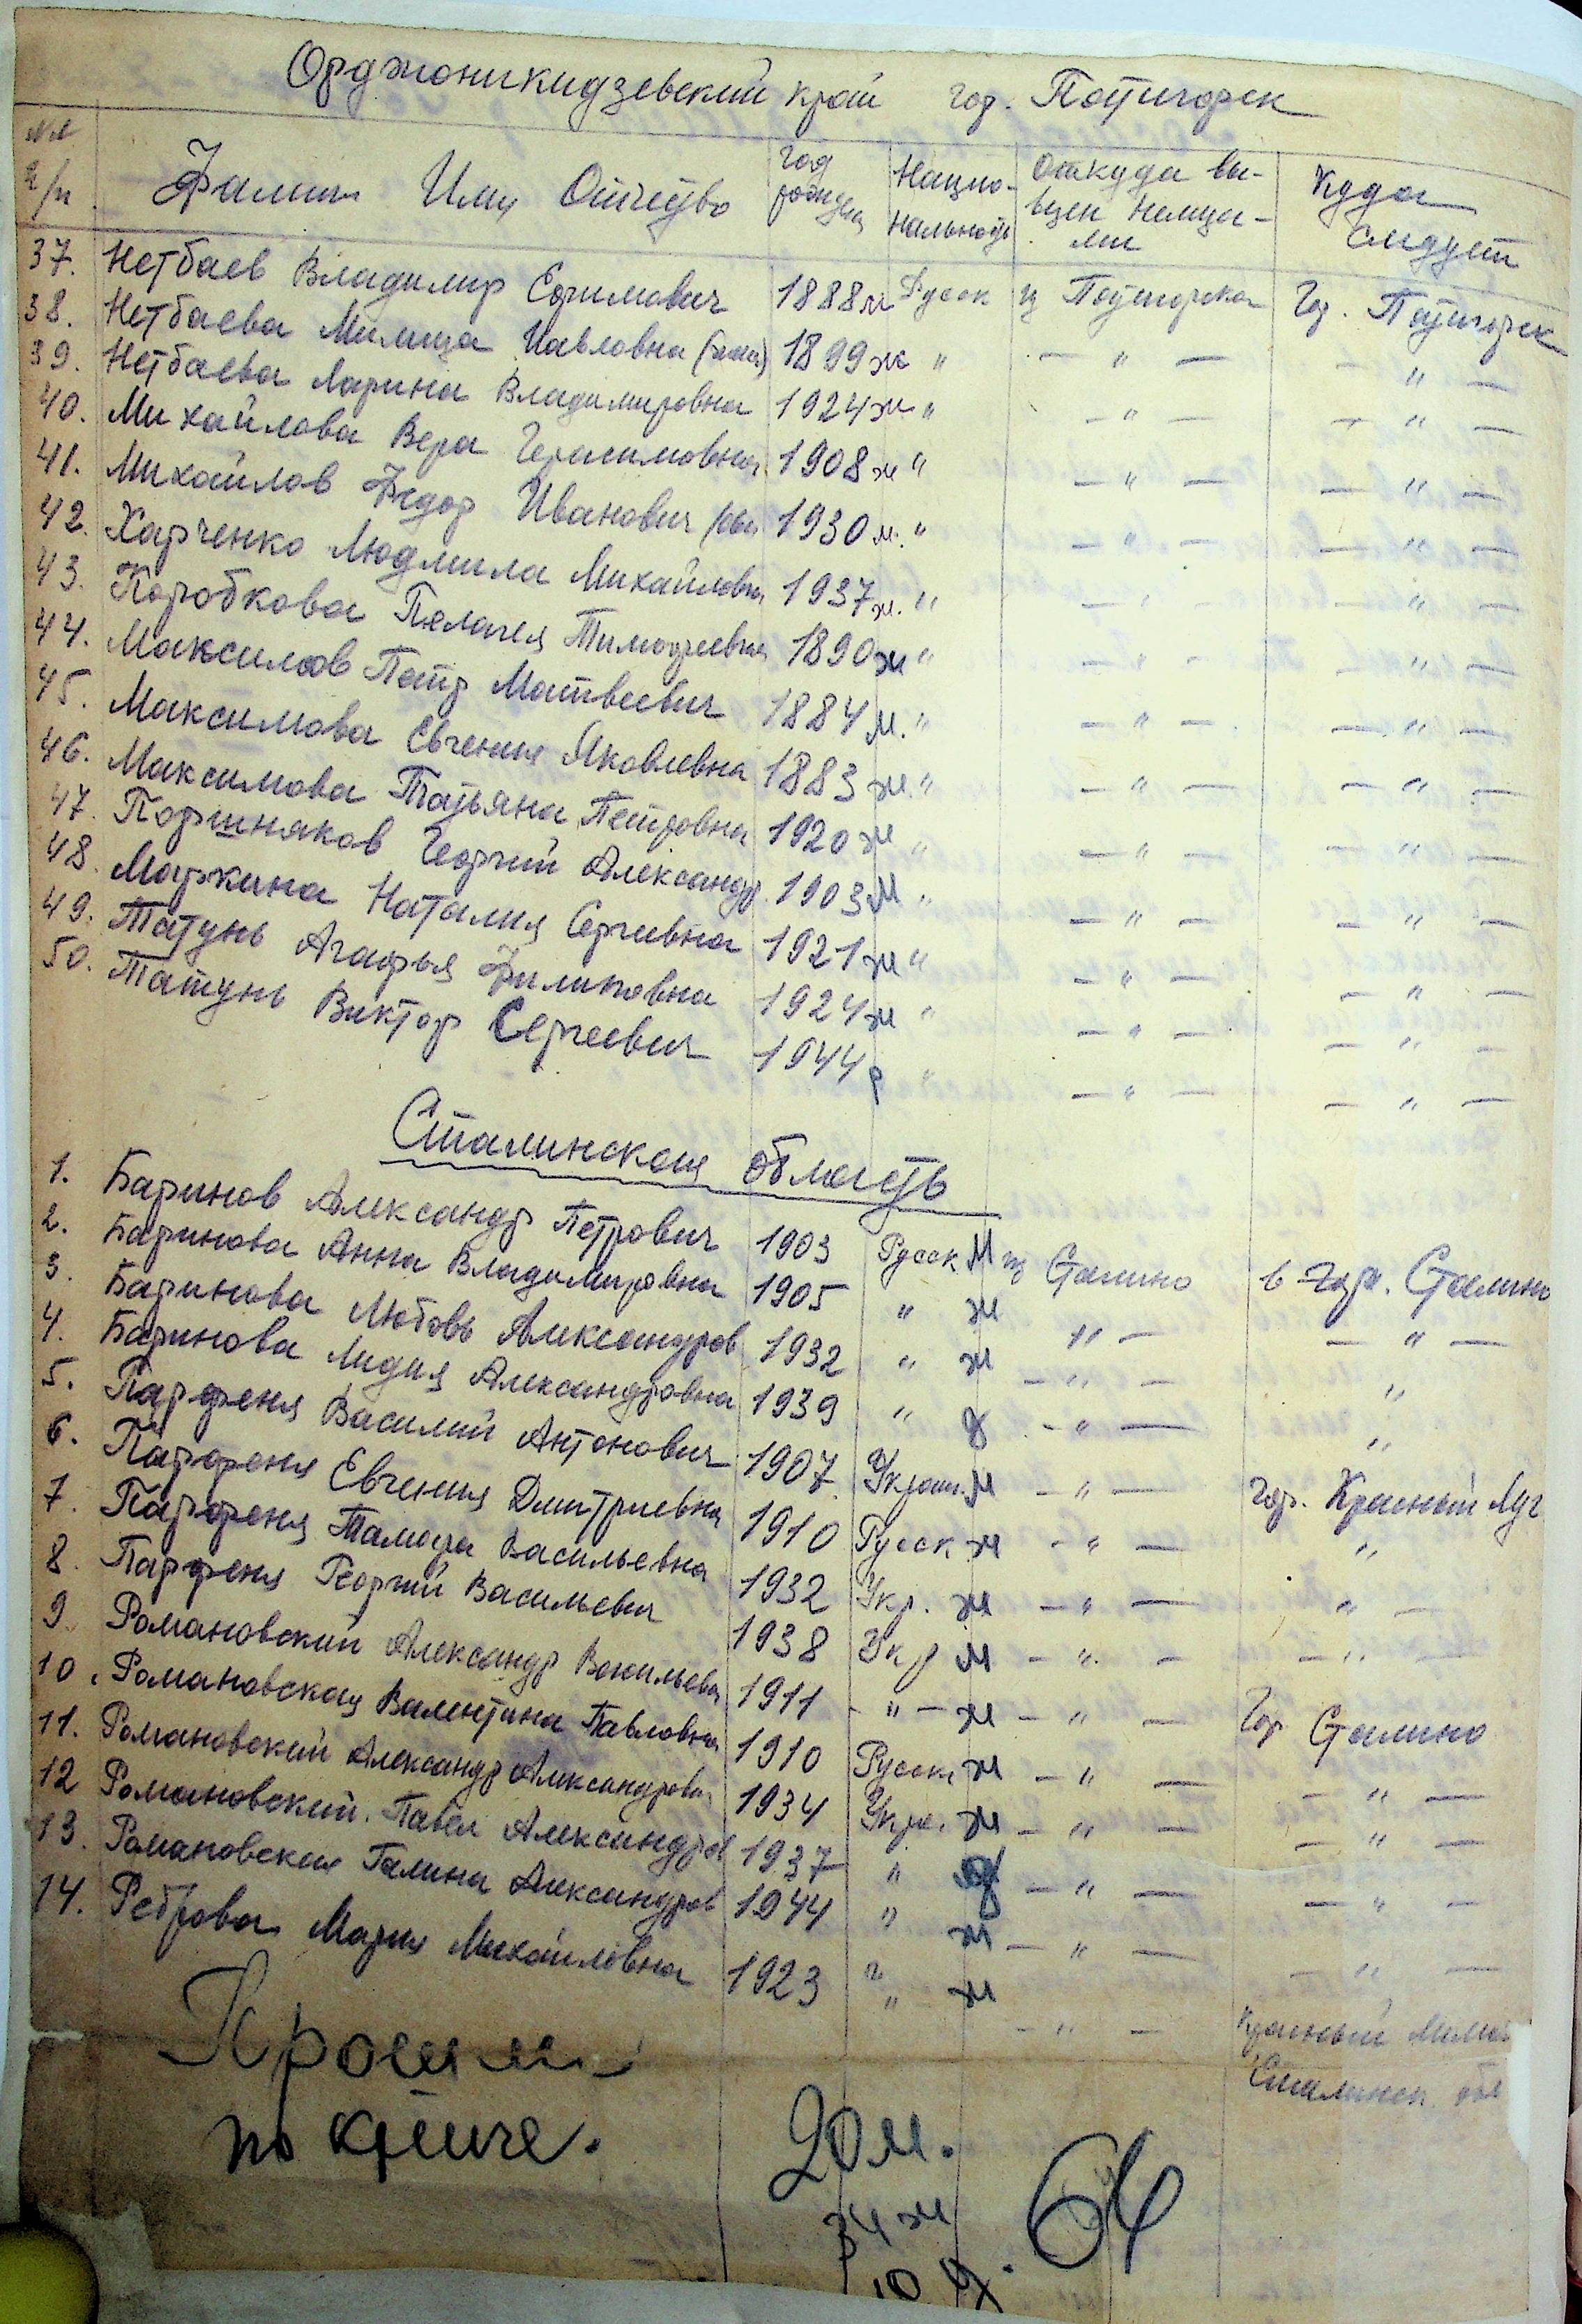 Орджоникидзевский край гор. Пятигорск
№№ п/п Фамилия Имя Отчество Год рожден Нацио-нальность Откуда вы-везен немца-ми Куда следует
37. Нетбаев Владимир Ефимович 1888 м Русск из Пятигорска Гор. Пятигорск
38. Нетбаева Милица Павловна (жена) 1899 ж " — " — — " —
39. Нетбаева Марина Владимировна 1924 ж " — " — — " —
40. Михайлова Вера Герасимовна 1908 ж " — " — — " —
41. Михайлов Федор Иванович (сын 1930 м. " — " — — " —
42. Харченко Людмила Михайловна 1937 ж. " — " — — " —
43. Коробкова Пелагея Тимофеевна 1890 ж " — " — — " —
44. Максимов Петр Матвеевич 1884 м. " — " — — " —
45. Максимова Евгения Яковлевна 1883 ж. " — " — — " —
46. Максимова Татьяна Петровна 1920 ж " — " — — " —
47. Поршняков Георгий Александр. 1903 м " — " — — " —
48. Маркина Наталия Сергеевна 1921 ж " — " — — " —
49. Татунь Агафья Филиповна 1924 ж " — " — — " —
50. Татунь Виктор Сергеевич 1944 р " — " — — " —
Сталинская область
1. Баринов Александр Петрович 1903 Русск м из Сталино в гор. Сталино
2. Баринова Анна Владимировна 1905 " ж " — — " —
3. Баринова Любовь Александров 1932 " ж — " — "
4. Баринова Лидия Александровна 1939 " д — " — "
5. Парфеня Василий Антонович 1907 Украин. м — " — Гор. Красный Луч
6. Парфеня Евгения Дмитриевна 1910 Русск ж — " — "
7. Парфеня Тамара Васильевна 1932 Укр. ж — " — " —
8. Парфеня Георгий Васильевич 1938 Укр м — " — — " —
9. Романовский Александр Васильевич 1911 — " — м — " — Гор Сталино
10. Романовская Валентина Павловна 1910 Русск ж — " — — " —
11. Романовский Александр Александрович 1934 Укра. м — " — — " —
12 Романовский. Павел Александров 1937 " д — " — — " —
13. Романовская Галина Александров 1944 " ж — " — — " —
14. Реброва Мария Михайловна 1923 " ж — " — Красный
Сталинск. обл
по книге.
20 м.
34 ж
10 д. 64